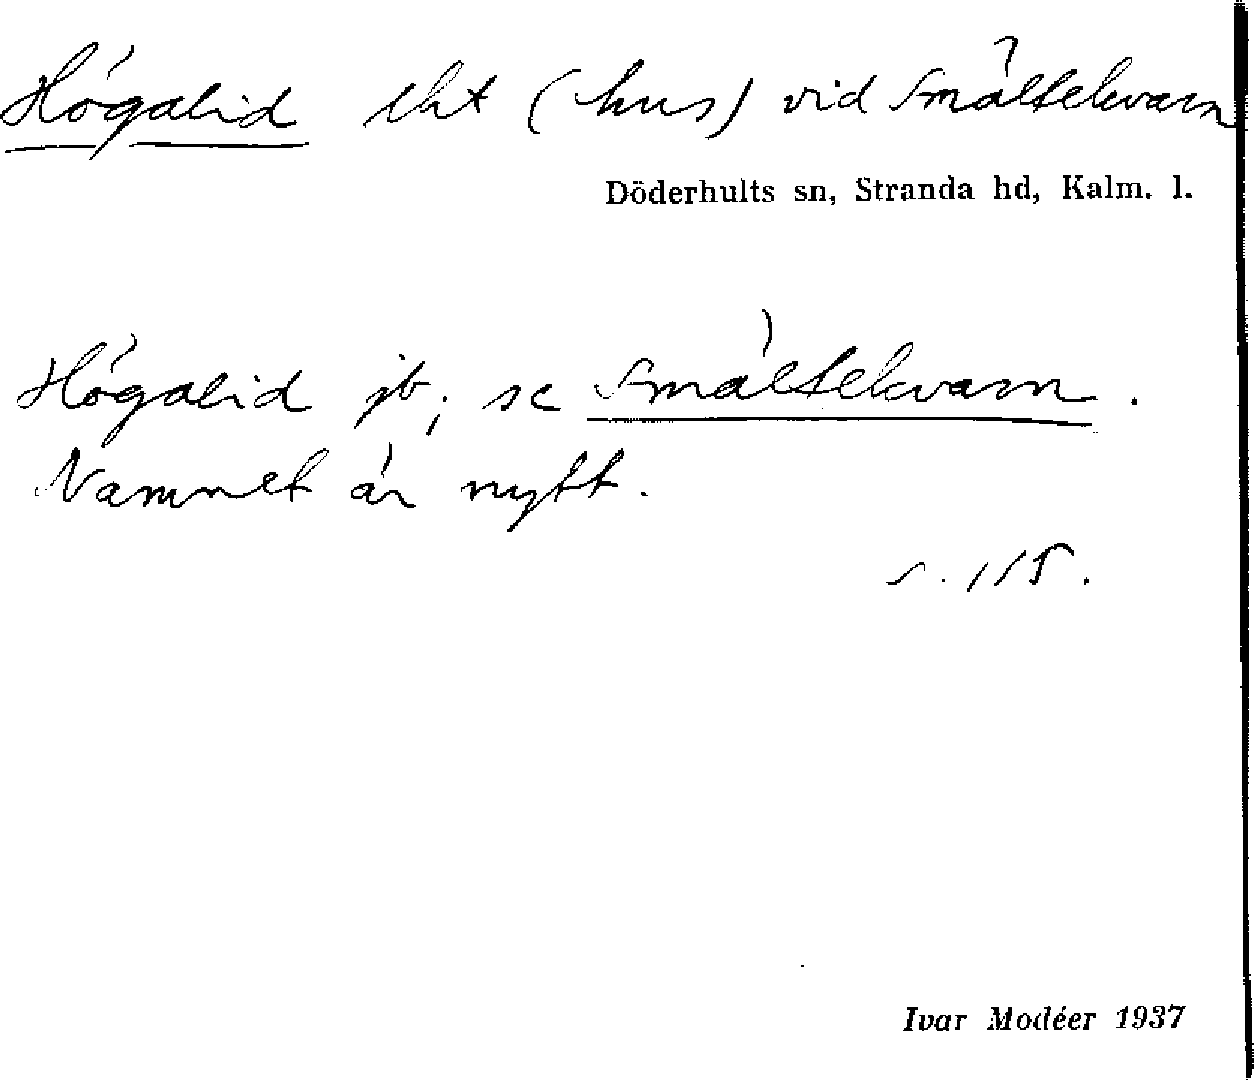 Högalid lht (hus) vid Smältekvarn
Döderhults sn, Stranda hd, Kalm. l.
Högalid jb, se Smältekvarn.
Namnet är nytt.
s. 115.
Ivar Modéer 1937